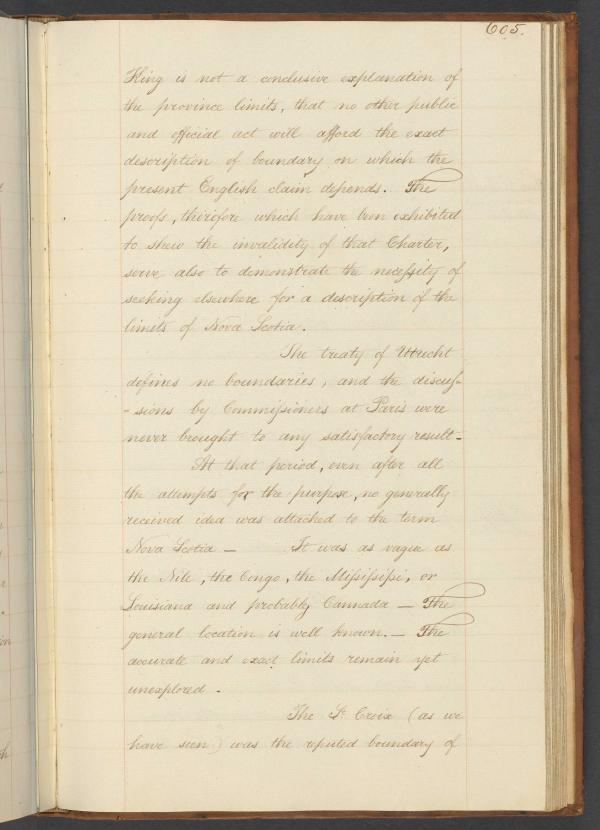 605.
King is not a conclusive explanation of
the province limits, that no other public
and official act will afford the exact
description of boundary on which the
present English claim depends. The
proofs, therefore which have been exhibited
to shew the invalidity of that Charter,
serve also to demonstrate the necessity of
seeking elsewhere for a description of the
limits of Nova Scotia.
The treaty of Utrecht
defines no boundaries, and the discus-
-sions by Commissioners at Paris were
never brought to any satisfactory result -
At that period, even after all
the attempts for the purpose, no generally
received idea was attached to the term
Nova Scotia - It was as vague as
the Nile, the Congo, the Missisippi, or
Louisiana and probably Cannada - The
general location is well known. - The
accurate and exact limits remain yet
unexplored -
The St Croix (as we
have seen) was the reputed boundary of